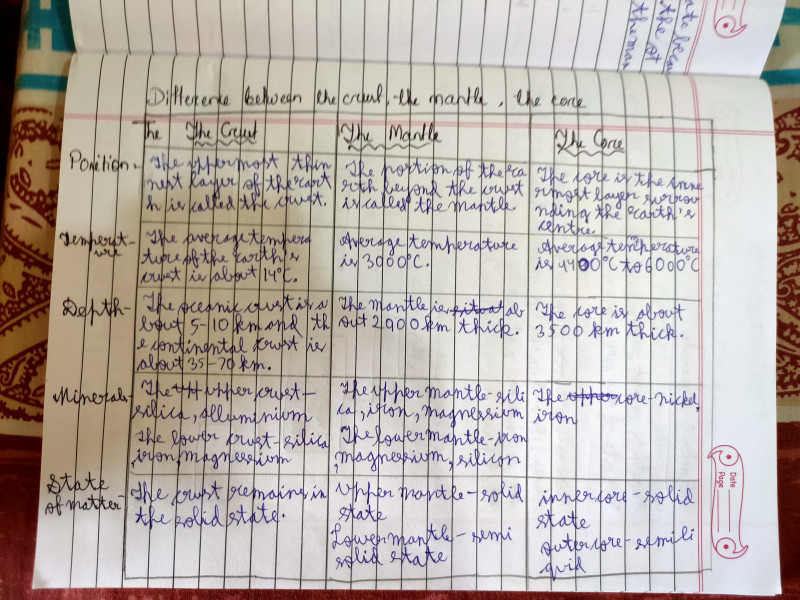 ate becau
the ot
the man
Difference between the crust, the mantle, the core
The The Crust
The Mantle
The Core
Position-
The uppermost thin
nest layer of the eart
h is called the crust.
The portion of the ea
rth beyond the crust
is called the mantle
The core is the inne
rmost layer surrou
nding the earth's
centre.
Temperat-
ure
The average tempera
ture of the earth's
crust is about 14°C.
Average temperature
is 3000°C.
Average temperature
is 4400°C to 6000°C
Depth-
The oceanic crust is a
bout 5-10 km and th
e continental crust is
about 35-70 km.
The mantle is situat ab
out 2900 km thick.
The core is about
3500 km thick.
Minerals-
The upper crust-
silica, alluminium
The lower crust-silica
, iron, magnessium
The upper mantle-sili
ca, iron, magnessium
The lower mantle-iron
, magnessium, silicon
The upper core-nickel,
iron
State
of matter-
The crust remains in
the solid state.
Upper mantle-solid
state
Lower mantle-semi
solid state
inner core-solid
state
outer core-semi li
quid
Date
Page